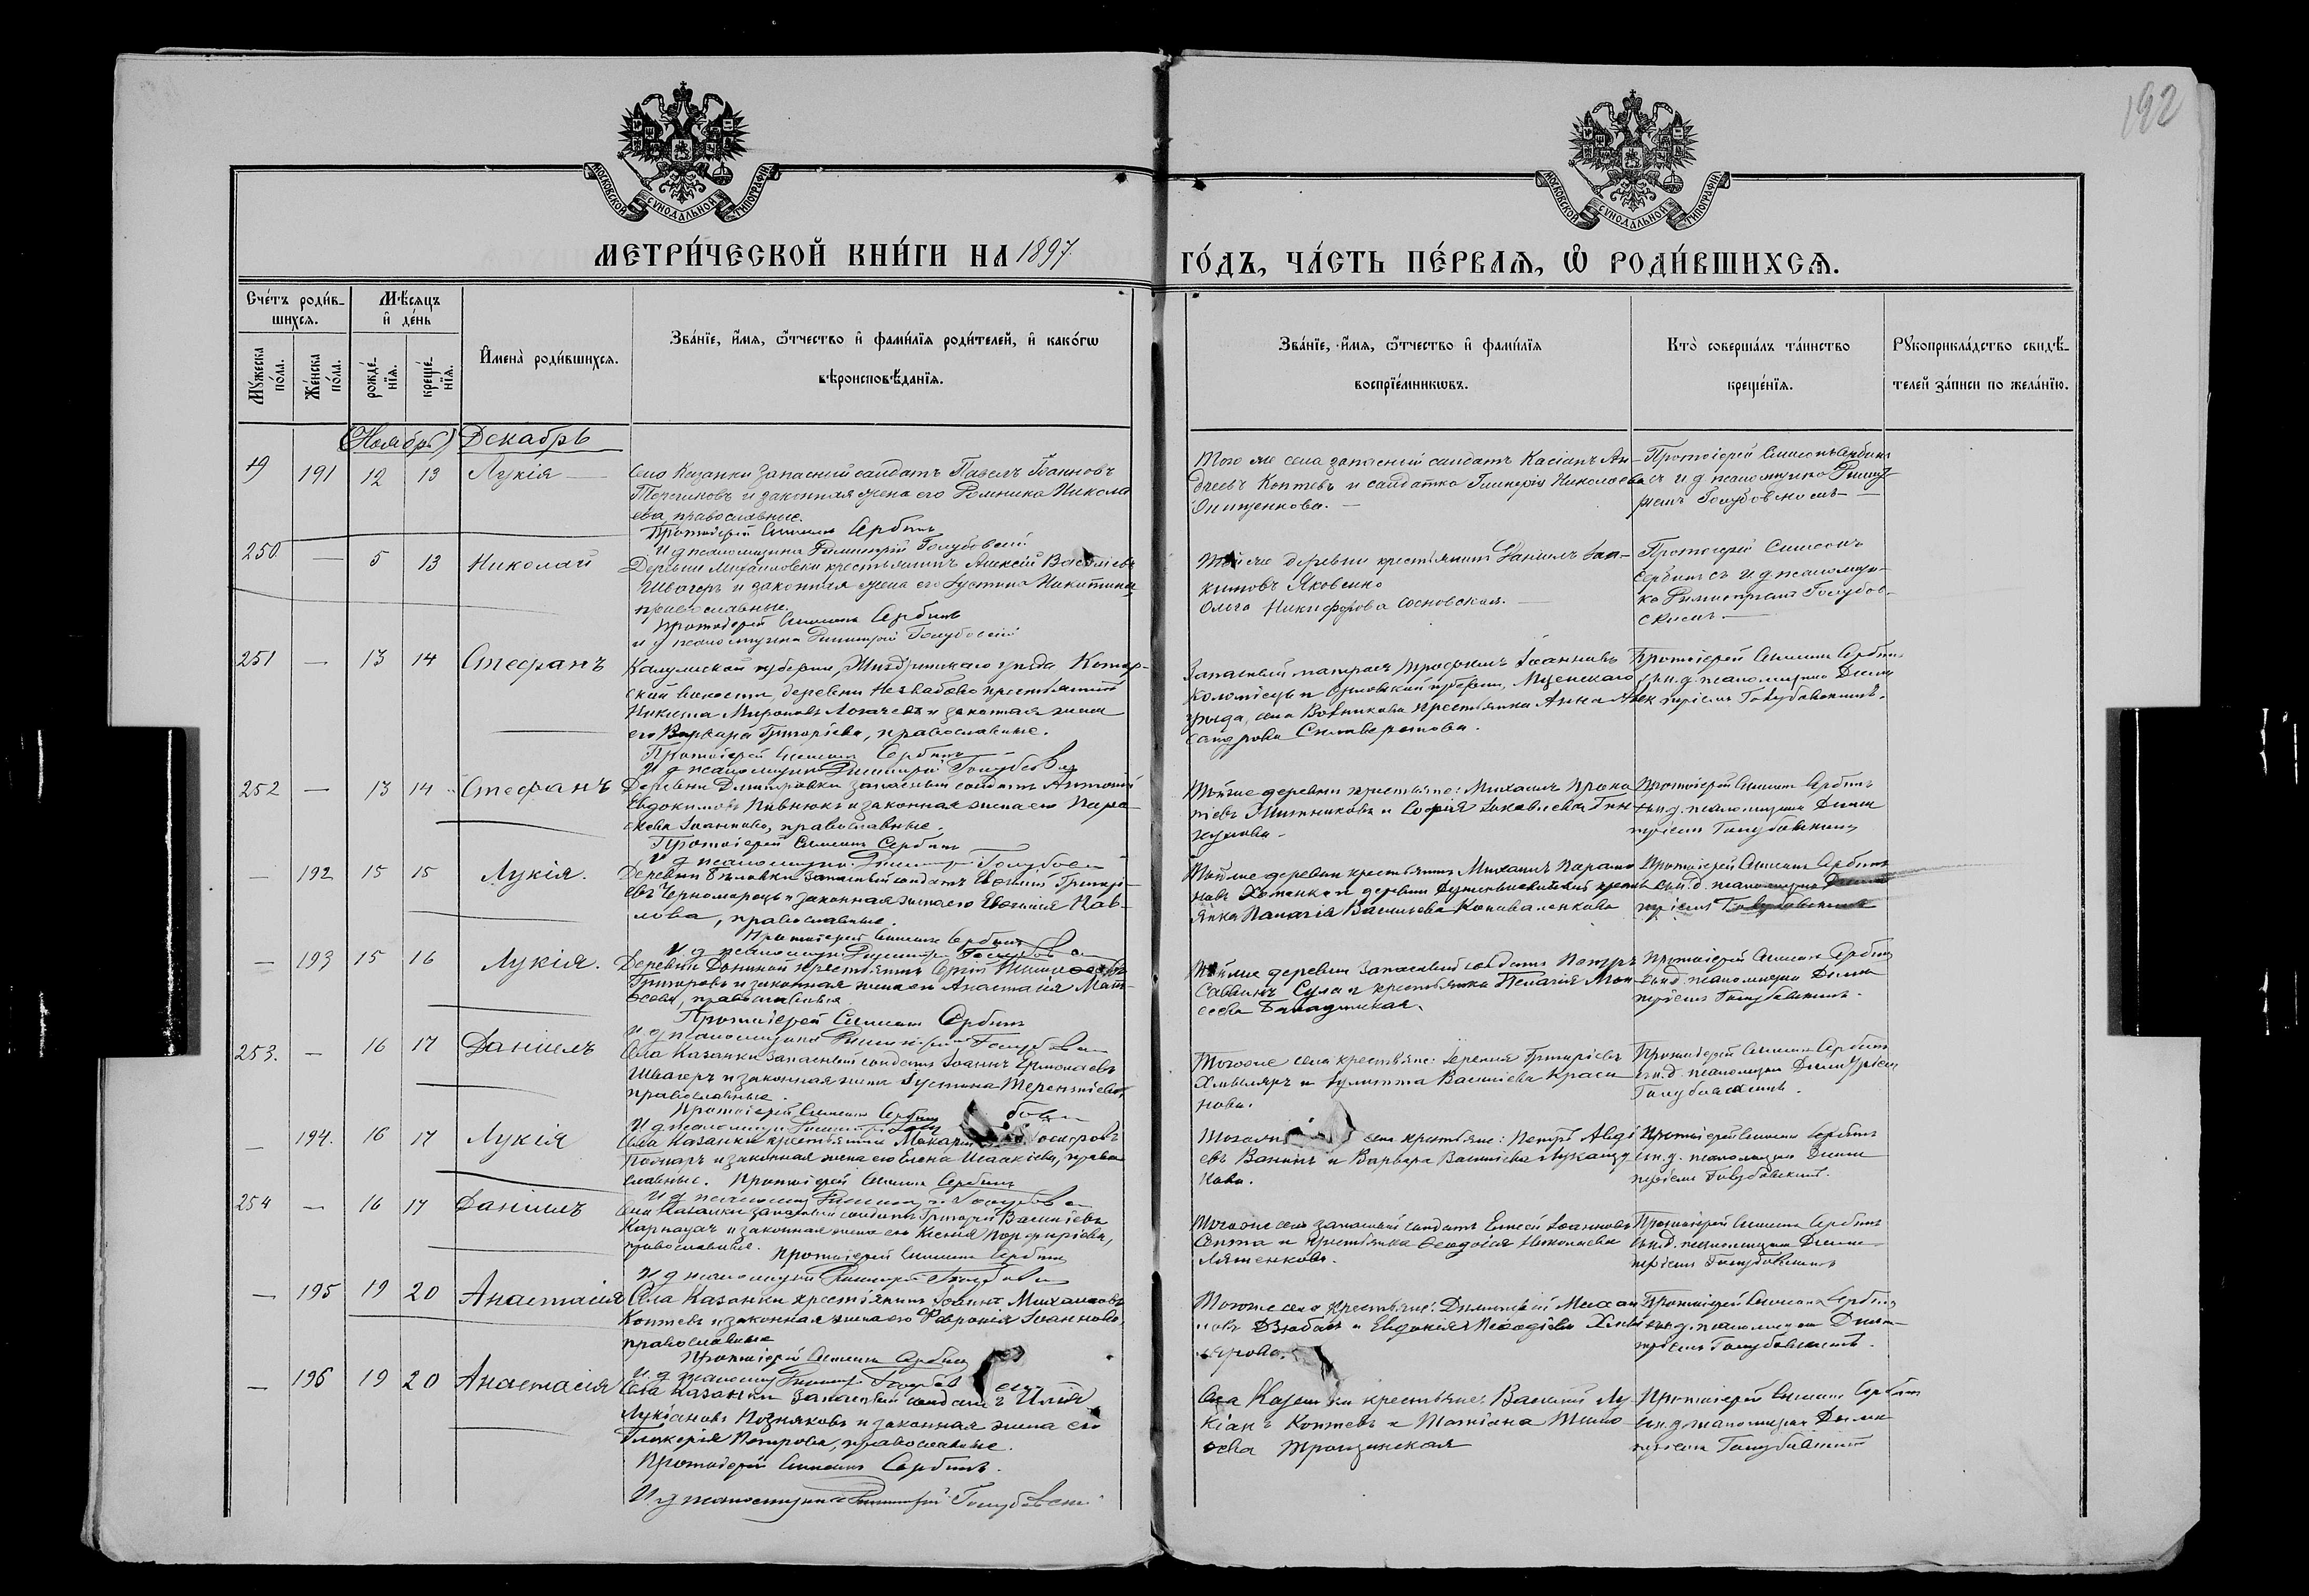 192
МОСКОВСКОЙ СУНОДАЛЬНОЙ ТИПОГРАФІИ
МОСКОВСКОЙ СУНОДАЛЬНОЙ ТИПОГРАФІИ
МЕТРИ́ЧЕСКОЙ КНИ́ГИ НА 1897
ГО́ДЪ, ЧА́СТЬ ПЕ́РВАѦ, Ѽ РОДИ́ВШИХСѦ.
Сче́тъ роди́в-
шихсѧ.
Мѣ́сѧцъ
и҆ де́нь
Мꙋ́жеска
по́ла.
Же́нска
по́ла.
рожде́-
нїѧ.
креще́-
нїѧ.
И҆мена̀ роди́вшихсѧ.
Зва́нїе, и҆́мѧ, ѻ҆́тчество и҆ фами́лїѧ роди́телей, и҆ како́гѡ
вѣроисповѣ́данїѧ.
Зва́нїе, и҆́мѧ, ѻ҆́тчество и҆ фами́лїѧ
воспрїе́мникѡвъ.
Кто̀ соверша́лъ та́инство
креще́нїѧ.
Рꙋкоприкла́дство свидѣ́-
телей за́писи по жела́нїю.
(Ноябрь) Декабрь
191 12 13 Лукія
Села Казанки запасный солдатъ Павелъ Іоанновъ
и законная жена его Никола
ева, православные.
Протоіерей Симеонъ Сербинъ
И д псаломщика Димитрій Голубовскій
Того же села запасный солдатъ Касіанъ Ан-
дреевъ Коптевъ и солдатка Гликерія Николаева
Онищенкова.
Протоіерей Симеонъ Сербинъ
съ и д псаломщика Димит-
ріемъ Голубовскимъ
250 — 5 13 Николай
Деревни Михайловки крестьянинъ Алексій
Швагеръ и законная жена его Іустина Никитина
православные.
Протоіерей Симеонъ Сербинъ
и д псаломщика Димитрій Голубовскій
Той же деревни крестьянинъ Даніилъ Іоа-
кимовъ Яковенко
Ольга Никифорова Сосновская.
Протоіерей Симеонъ
Сербинъ съ и д псаломщи-
ка Димитріемъ Голубов-
скимъ
251 — 13 14 Стефанъ
Калужской губерніи, Жиздринскаго уѣзда
ской волости, деревни крестьянинъ
Никита Мироновъ и законная жена
его Варвара Григорієва, православные.
Протоіерей Симеонъ Сербинъ
И д псаломщика Димитрій Голубовскій
Запасный матросъ Трофимъ Іоанновъ
Коломіецъ и Орловской губерніи, Мценскаго
уѣзда, села крестьянка Анна Алек
сандрова Сильверстова.
Протоіерей Симеонъ Сербинъ
съ и. д. псаломщика Дими
тріемъ Голубовскимъ.
252 — 13 14 Стефанъ
Деревни Димитровки запасный солдатъ Антоній
Евдокимовъ Пивнюкъ и законная жена его Пара
скева Іоаннова, православные.
Протоіерей Симеонъ Сербинъ
И д псаломщика Димитрій Голубовскій
Той же деревни крестьяне: Михаилъ Проко
піевъ и Софія Іаковлева
Протоіерей Симеонъ Сербинъ
съ и. д. псаломщика Дими
тріемъ Голубовскимъ
— 192 15 15 Лукія.
Деревни запасный солдатъ Евѳимій Григорі-
евъ Черноморецъ и законная жена его Евгенія Пав-
лова, православные.
Протоіерей Симеонъ Сербинъ
И д псаломщика Димитрій Голубовскій
Той же деревни крестьянинъ Михаилъ Парамо
новъ Хоменко и деревни кресть
янка Пелагія Васильева Коноваленкова
Протоіерей Симеонъ Сербинъ
съ и. д. псаломщика Дими
тріемъ Голубовскимъ
— 193 15 16 Лукія.
Деревни Дониной крестьянинъ Сергій
Григоровъ и законная жена его Анастасія Мат-
ѳеева, православные.
Протоіерей Симеонъ Сербинъ
И д псаломщика Димитрій Голубовскій
Той же деревни запасный солдатъ Петръ
Саввинъ Сула и крестьянка Пелагія Мои
сеева
Протоіерей Симеонъ Сербинъ
съ и. д. псаломщика Дими
тріемъ Голубовскимъ.
253. — 16 17 Даніилъ
Села Казанки запасный солдатъ Іоаннъ Ермолаевъ
Швагеръ и законная жена Іустина Терентіева,
православные.
Протоіерей Симеонъ Сербинъ
И д псаломщика Димитрій
Того же села крестьяне: Іеремія Григоріевъ
и Іулитта Васильева Краси
нова.
Протоіерей Симеонъ Сербинъ
съ и. д. псаломщика Димитріемъ
Голубовскимъ.
— 194. 16 17 Лукія
Села Казанки крестьянинъ Макарій
и законная жена его Елена Исаакіева, право
славные. Протоіерей Симеонъ Сербинъ
И д псаломщика Димитрій Голубовскій
села крестьяне: Петръ Авді
евъ Ванинъ и Варвара Васильева
кова.
Протоіерей Симеонъ Сербинъ
съ и. д. псаломщика Дими
тріемъ Голубовскимъ.
254 — 16 17 Даніилъ
Села Казанки запасный солдатъ Григорій Васильевъ
Карнаухъ и законная жена его Ксенія Порфиріева,
православные. Протоіерей Симеонъ Сербинъ
И д псаломщика Димитрій Голубовскій
Того же села запасный солдатъ Елисей Іоанновъ
Сопта и крестьянка Ѳеодосія Николаева
Ляшенкова.
Протоіерей Симеонъ Сербинъ
съ и. д. псаломщика Дими
тріемъ Голубовскимъ
— 195 19 20 Анастасія
Села Казанки крестьянинъ Іоаннъ Михаиловъ
Коптевъ и законная жена его Февронія Іоаннова,
православные
Протоіерей Симеонъ Сербинъ
И д псаломщика Димитрій
Того же села крестьяне: Димитрій Михаи
ловъ Дзюбакъ и Евдокія
Протоіерей Симеонъ Сербинъ
съ и. д. псаломщика Дими
тріемъ Голубовскимъ.
— 196 19 20 Анастасія
Села Казанки запасный солдатъ Илія
Лукіановъ Позняковъ и законная жена его
Гликерія Петрова, православные.
Протоіерей Симеонъ Сербинъ.
И д псаломщика Димитрій Голубовскій
Села Казанки крестьяне: Василій Лу
кіанъ Коптевъ и Татіана Тимо
ѳеева Троцинская
Протоіерей Симеонъ Сербинъ
съ и. д. псаломщика Дими
тріемъ Голубовскимъ